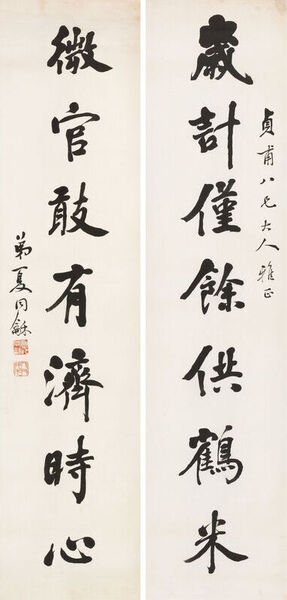 貞甫八兄大人雅正
歲計僅餘供鶴米
微官敢有濟時心
弟夏同龢